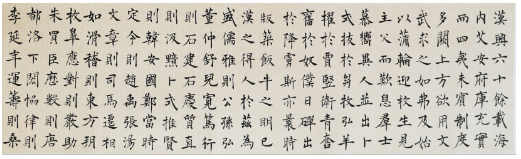 漢興六十餘載海
內乂安府庫充實
而四夷未賓制度
多闕上方欲用文
武求之如弗及始
以蒲輪迎枚生見
主父而歎息群士
慕嚮異人並出卜
式拔於芻牧弘羊
擢於賈豎衛青
奮於奴僕日磾出
於降虜斯亦曩時
版築飯牛之明已
漢之得人於茲為
盛儒雅則公孫弘
董仲舒兒寬篤行
則石建石慶質直
則汲黯卜式推賢
則韓安國鄭當時
定令則趙禹張湯
文章則司馬遷相
如滑稽則東方朔
枚皋應對則嚴助
朱買臣歷數則唐
都洛下閎協律則
李延年運籌則桑